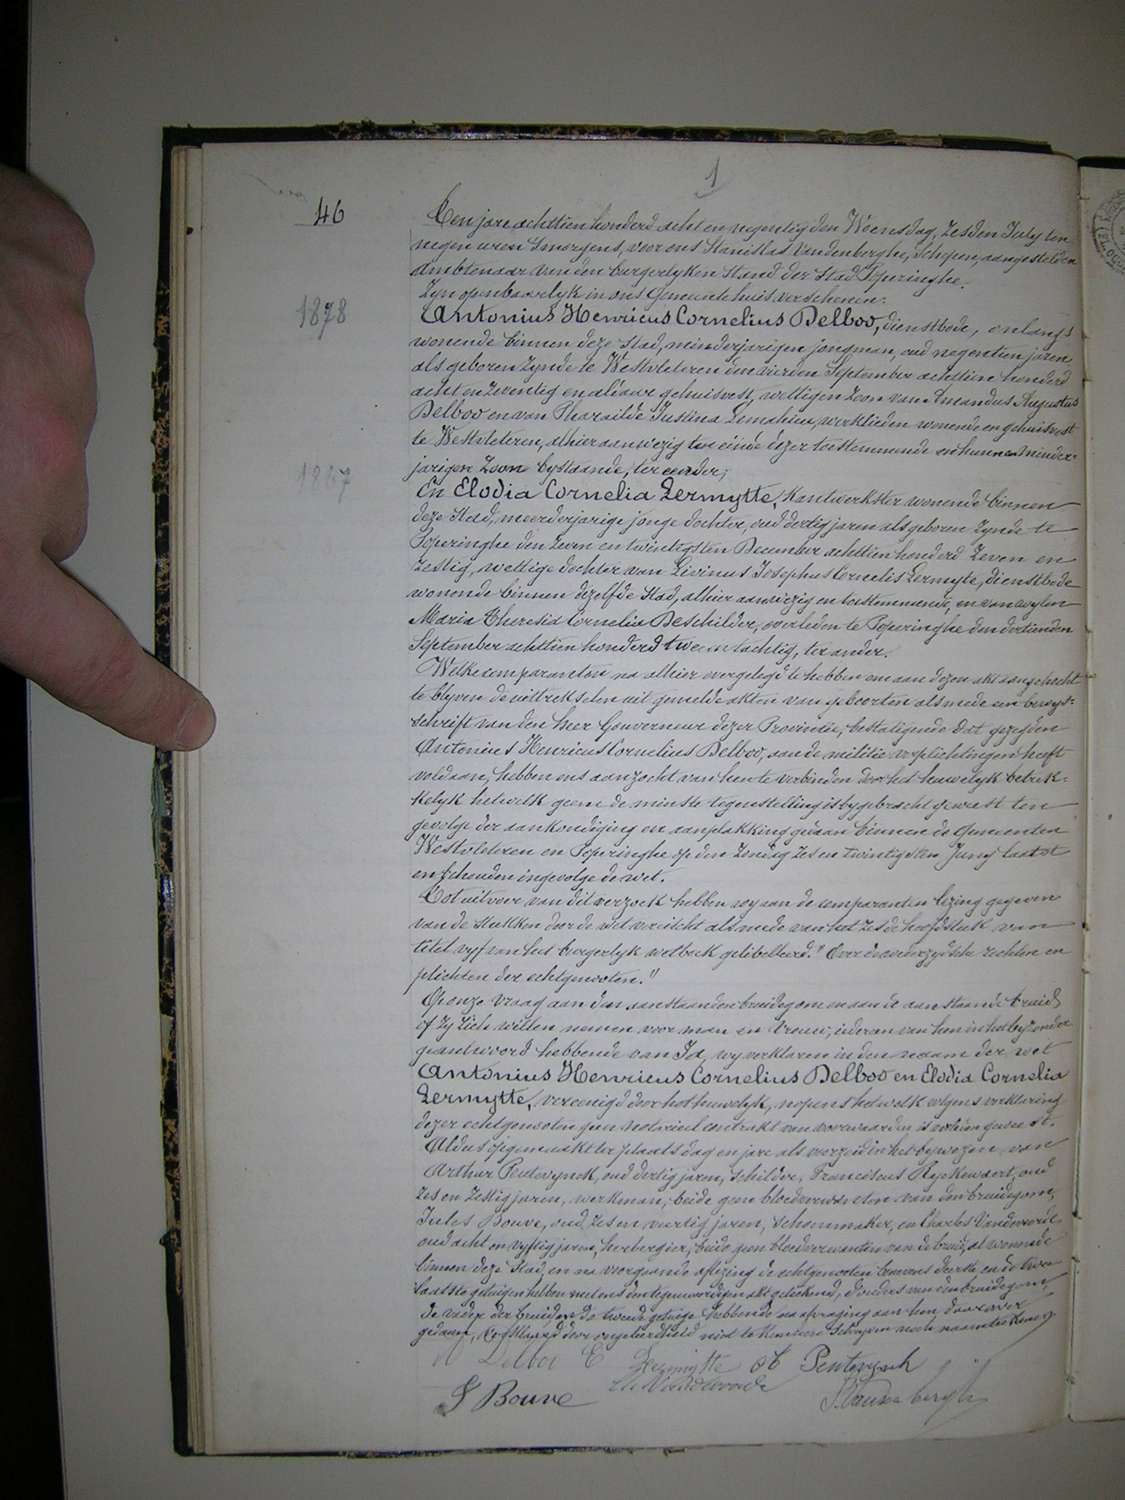 1
46
Ten jare achttien honderd acht en negentig den Woensdag, zesden July ten
negen uren s'morgens, voor ons Stanislas Vandenberghe, Schepen, aangestelden
ambtenaar van den burgerlyken stand der Stad Poperinghe.
Zyn openbaarlyk in ons Gemeentehuis verschenen:
1878
Antonius Henricus Cornelius Delboo, dienstbode, onlangs
wonende binnen deze Stad, minderjarigen jongman, oud negentien jaren
als geboren zynde te Westvleteren den vierden September achttien honderd
acht en zeventig en aldaar gehuisvest, wettigen zoon van Amandus Augustus
Delboo en van Pharaïlde Justina Lemahieu, werklieden wonende en gehuisvest
te Westvleteren, alhier aanwezig ten einde dezer toestemmende en hunnen minder-
jarigen zoon bystaande, ter eender;
1867
En Elodia Cornelia Lermytte, Kantwerkster wonende binnen
deze Stad, meerderjarige jonge dochter, oud dertig jaren als geboren zynde te
Poperinghe den zeven en twintigsten December achttien honderd zeven en
zestig, wettige dochter van Livinus Josephus Cornelis Lermyte, dienstbode
wonende binnen dezelfde Stad, alhier aanwezig en toestemmende, en van wylen
Maria Theresia Cornelia Deschilder, overleden te Poperinghe den dertienden
September achttien honderd twee en tachtig, ter ander.
Welke comparanten na alhier overgelegd te hebben om aan dezen akt aangehecht
te blyven de uittrekselen uit gemelde akten van geboorten alsmede een bewys-
schrift van den heer Gouverneur dezer Provincie, bestatigende dat gezegden
Antonius Henricus Cornelius Delboo, aan de militie verplichtingen heeft
voldaan, hebben ons aanzocht van hen te verbinden door het huwelyk betrek-
kelyk hetwelk geene de minste tegenstelling is bygebracht geweest ten
gevolge der aankondiging en aanplakking gedaan binnen de Gemeenten
Westvleteren en Poperinghe op den Zondag zes en twintigsten Juny laatst
en behouden ingevolge de wet.
Tot uitvoer van dit verzoek hebben wy aan de comparanten lezing gegeven
van de stukken door de wet vereischt alsmede van het zesde hoofdstuk van
titel vyf van het burgerlyk wetboek getitelleerd: "Over de wederzydsche rechten en
plichten der echtgenooten."
Op onze vraag aan den aanstaanden bruidegom en aan de aanstaande bruid
of zy zich willen nemen voor man en vrouw, iederan van hen in het byzonder
geantwoord hebbende van Ja, wy verklaren in den naam der wet
Antonius Henricus Cornelius Delboo en Elodia Cornelia
Lermytte, vereenigd door het huwelyk, nopens hetwelk volgens verklaring
dezer echtgenooten geen notarieel contrakt van voorwaarden is verleden geweest.
Aldus opgemaakt ter plaats dag en jare als voorzeid in het bywezen van
Arthur Peutevynck, oud dertig jaren, schilder, Franciscus Ryckewaert, oud
zes en zestig jaren, werkman, beide geen bloedverwanten van den bruidegom,
Jules Bouve, oud zes en veertig jaren, schoenmaker, en Charles Vandevoorde
oud acht en vyftig jaren, herbergier, beide geen bloedverwanten van de bruid, al wonende
binnen deze Stad, en na voorgaande aflezing de echtgenooten benevens de eerste en de twee
laatste getuigen hebben met ons den tegenwoordigen akt geteekend, d'ouders van den bruidegom,
de vader der bruid en de tweede getuige hebbende na afvraging aan hen daarover
gedaan, verklaard door ongeleerdheid niet te kunnen schryven noch naamteekenen.
Delboo E Lermytte A Peutevynck
Ch Vandevoorde
J Bouve S Vandenberghe